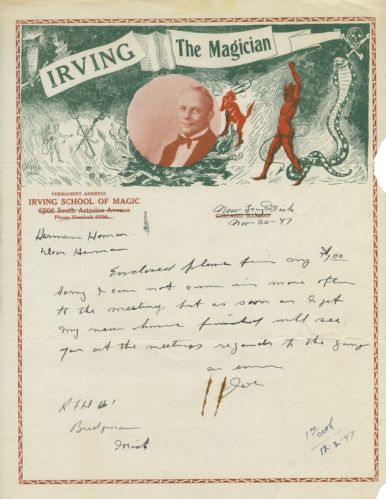 IRVING The Magician
PERMANENT ADDRESS
IRVING SCHOOL OF MAGIC
6506 South Artesian Avenue
Phone Hemlock
New Troy Mich
CHICAGO, ILLINOIS
Nov-20-47
Herman Homar
Dear Herman
Enclosed please find my $1.00
Sorry I can not come in more often
to the meeting but as soon as I get
my new house finished will see
you at the meetings regards to the gang
as ever
Joe
R F D #1
Bridgman
Mich
12-2-47